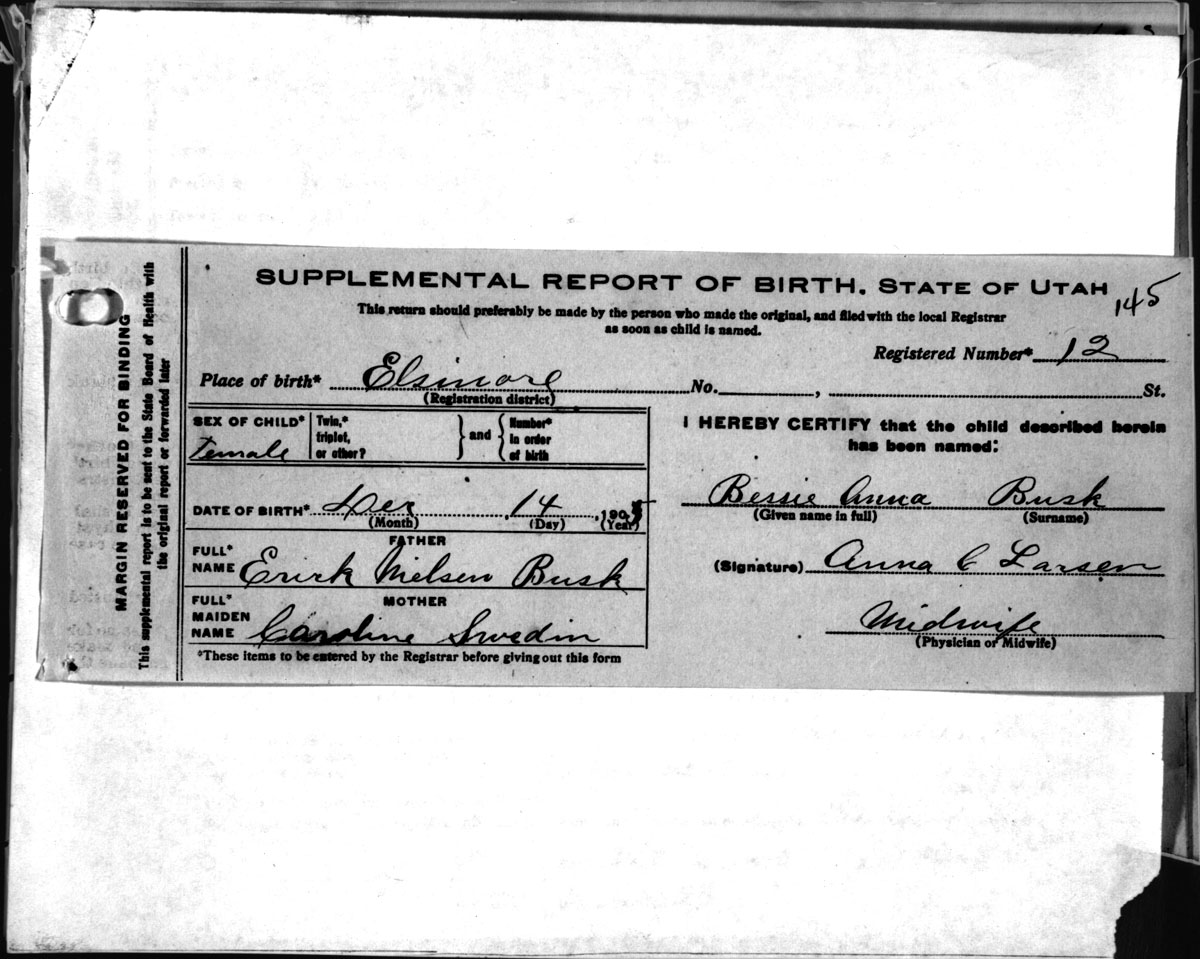 SUPPLEMENTAL REPORT OF BIRTH. STATE OF UTAH
145
This return should preferably be made by the person who made the original, and filed with the local Registrar
as soon as child is named.
Registered Number* 12
Place of birth* Elsinore No. , St.
(Registration district)
SEX OF CHILD* Female
Twin,*
triplet,
or other?
} and {
Number*
in order
of birth
DATE OF BIRTH* Dec 14, 1905
(Month) (Day) (Year)
FATHER
FULL*
NAME Erick Nielsen Busk
MOTHER
FULL*
MAIDEN
NAME Caroline Swedin
*These items to be entered by the Registrar before giving out this form
I HEREBY CERTIFY that the child described herein
has been named:
Bessie Anna Busk
(Given name in full) (Surname)
(Signature) Anna C Larsen
Midwife
(Physician or Midwife)
MARGIN RESERVED FOR BINDING
This supplemental report is to be sent to the State Board of Health with
the original report or forwarded later